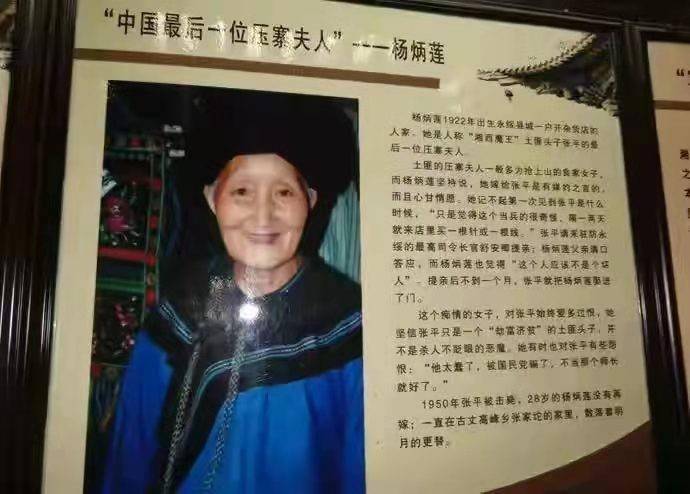 “中国最后一位压寨夫人”——杨炳莲
杨炳莲1922年出生永绥县城一户开杂货店的
人家。她是人称“湘西魔王”土匪头子张平的最
后一位压寨夫人。
土匪的压寨夫人一般多为抢上山的良家女子，
而杨炳莲坚持说，她嫁给张平是有媒的之言的，
而且心甘情愿。她记不起第一次见到张平是什么
时候，“只是觉得这个当兵的很奇怪，隔一两天
就来店里买一根针或一根线。”张平请来驻防永
绥的最高司令长官舒安卿提亲；杨炳莲父亲满口
答应，而杨炳莲也觉得“这个人应该不是个坏
人”。提亲后不到一个月，张平就把杨炳莲娶进
了门。
这个痴情的女子，对张平始终爱多过恨，她
坚信张平只是一个“劫富济贫”的土匪头子，并
不是杀人不眨眼的恶魔。她有时也对张平有些怨
恨：“他太蠢了，被国民党骗了，不当那个师长
就好了。”
1950年张平被击毙，28岁的杨炳莲没有再
嫁；一直在古丈高峰乡张家坨的家里，数落着明
月的更替。
“
湘
之
本